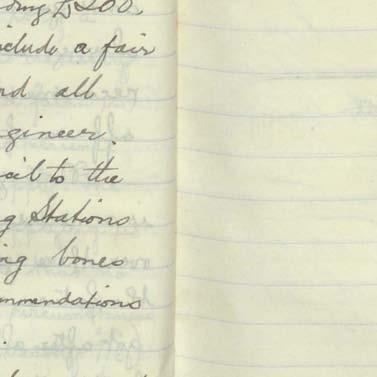 £200.
clude a fair
nd all
gineer
cil to the
g Stations
ing bones
mmendations